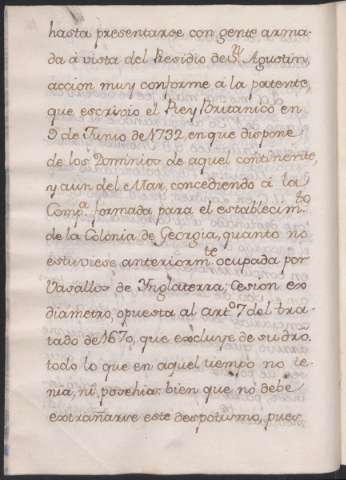 hasta presentarse con gente arma-
da á vista del Presidio de Sn Agustin,
accion muy conforme á la patente,
que escrivio el Rey Britanico en
9 de Junio de 1732, en que dispone
de los Dominios de aquel continente,
y aun del Mar, concediendo á la
Compa. formada para el establecimto
de la Colonia de Georgia, quanto no
estuviese anteriormte ocupada por
Vasallos de Ynglaterra; Cesion ex
diametro, opuesta al arto 7 del tra-
tado de 1670, que excluye de su dro.
todo lo que en aquel tiempo no te-
nia, ni posehia: bien que no debe
extrañarse este despotismo, pues